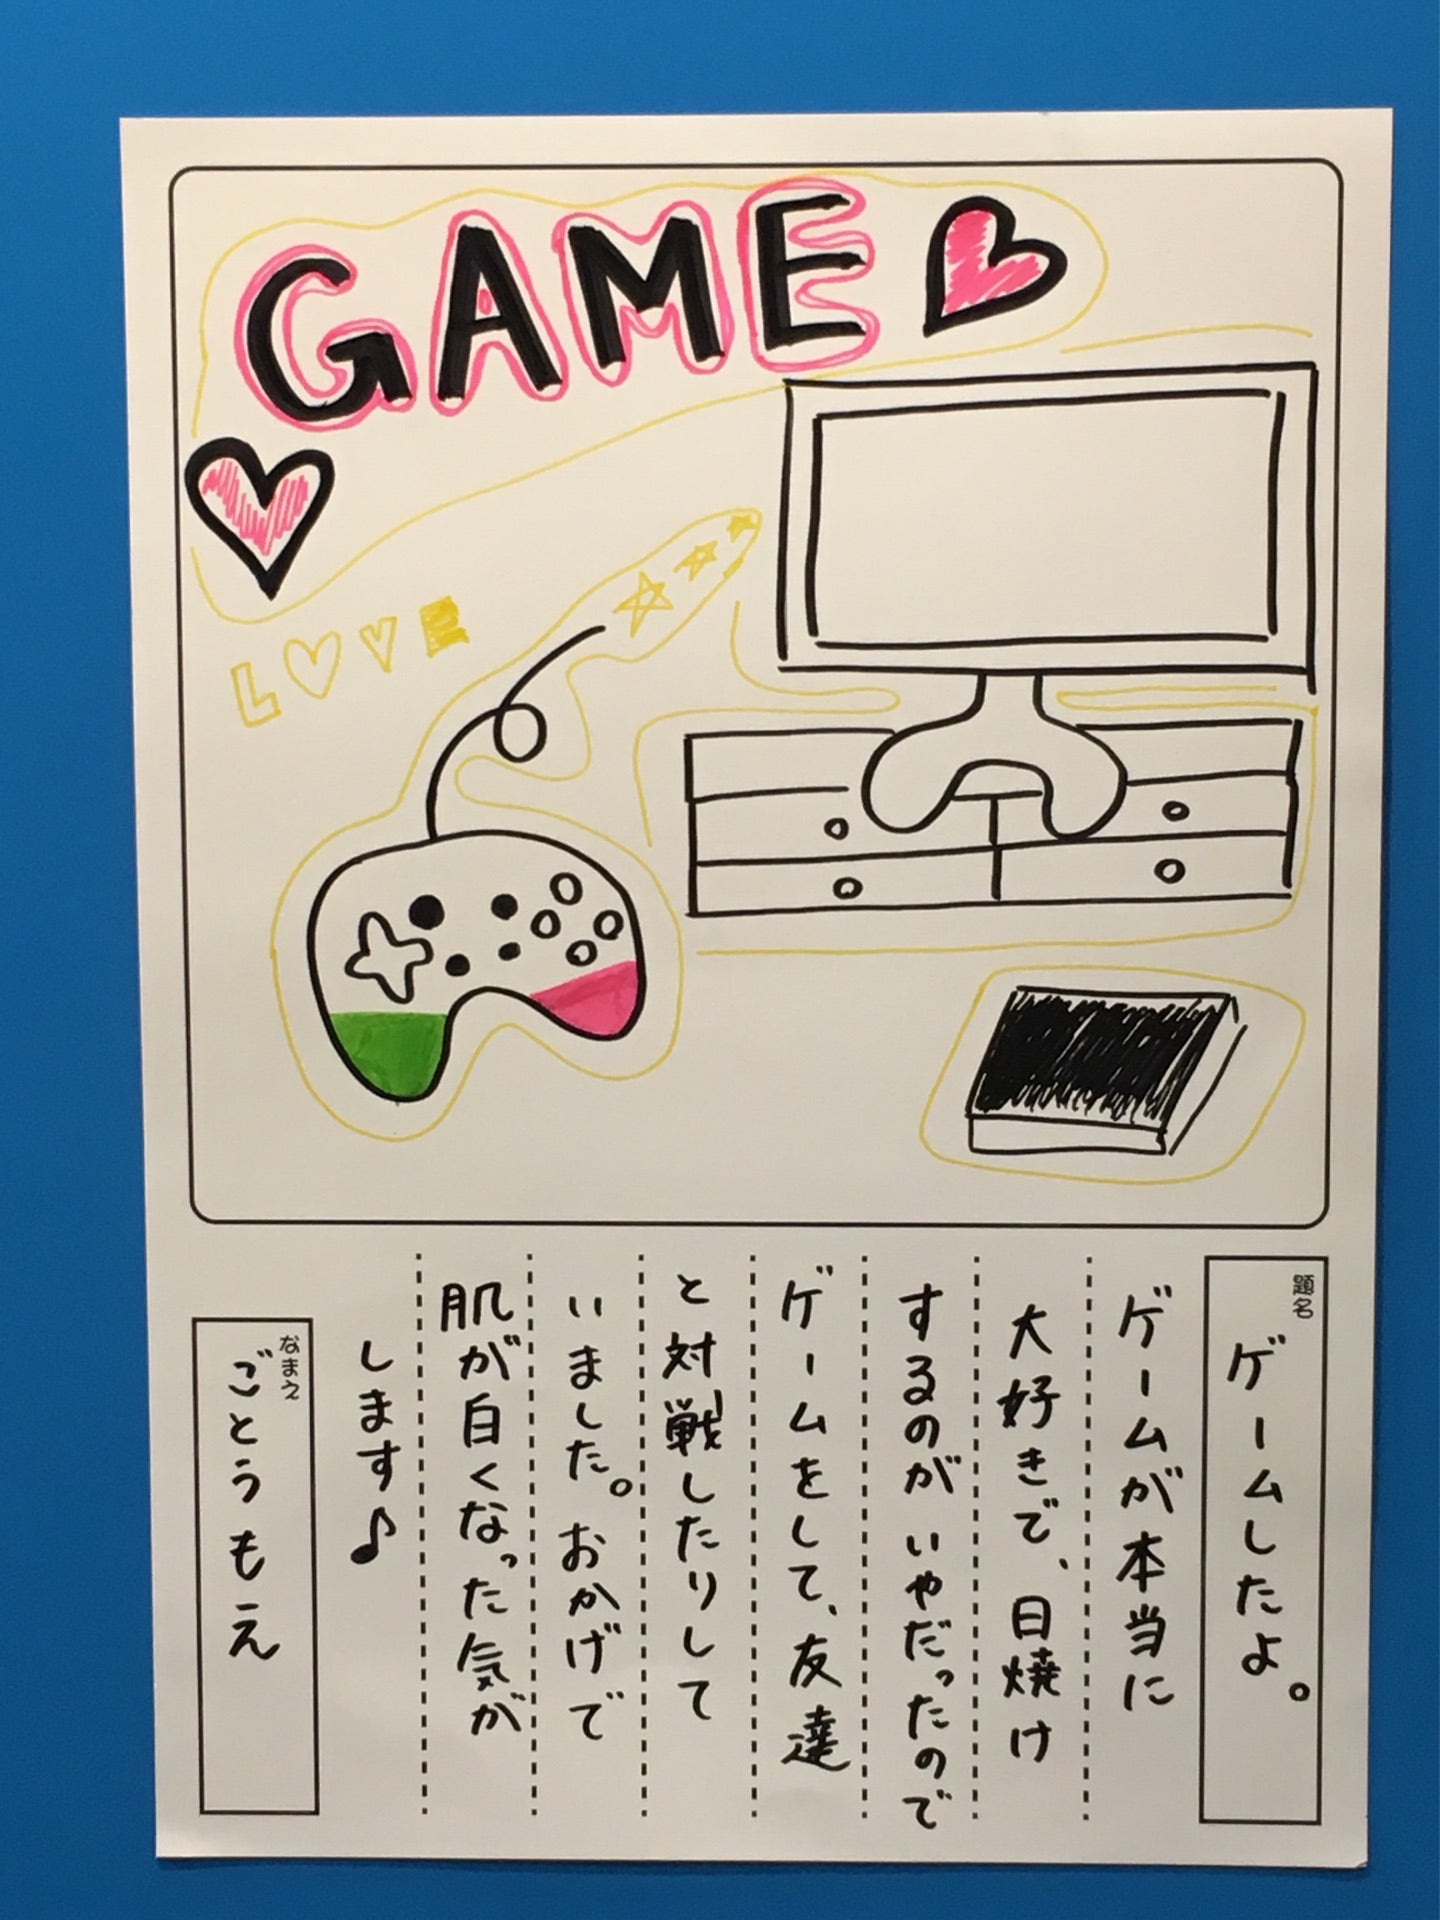 GAME
LOVE
題名
ゲームしたよ。
ゲームが本当に
大好きで、日焼け
するのがいやだったので
ゲームをして、友達
と対戦したりして
いました。おかげで
肌が白くなった気が
します♪
なまえ
ごとうもえ